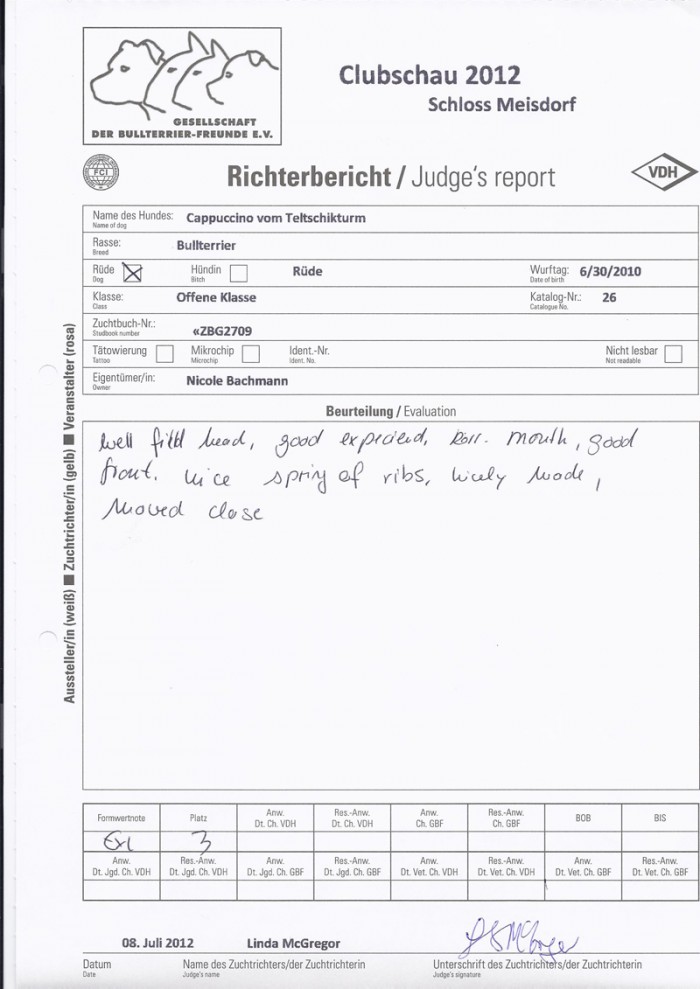 Clubschau 2012
Schloss Meisdorf
GESELLSCHAFT
DER BULLTERRIER-FREUNDE E.V.
FCI
Richterbericht / Judge's report
VDH
Name des Hundes: Cappuccino vom Teltschikturm
Name of dog
Rasse: Bullterrier
Breed
Rüde Hündin Rüde Wurftag: 6/30/2010
Dog Bitch Date of birth
Klasse: Offene Klasse Katalog-Nr.: 26
Class Catalogue No.
Zuchtbuch-Nr.: «ZBG2709
Studbook number
Tätowierung Mikrochip Ident.-Nr. Nicht lesbar
Tattoo Microchip Ident. No. Not readable
Eigentümer/in: Nicole Bachmann
Owner
Aussteller/in (weiß) ■ Zuchtrichter/in (gelb) ■ Veranstalter (rosa)
Beurteilung / Evaluation
well filld head, good mouth, good
front. nice spring of ribs, nicely made,
moved close
Formwertnote Platz Anw. Dt. Ch. VDH Res.-Anw. Dt. Ch. VDH Anw. Ch. GBF Res.-Anw. Ch. GBF BOB BIS
Exl 3
Anw. Dt. Jgd. Ch. VDH Res.-Anw. Dt. Jgd. Ch. VDH Anw. Dt. Jgd. Ch. GBF Res.-Anw. Dt. Jgd. Ch. GBF Anw. Dt. Vet. Ch. VDH Res.-Anw. Dt. Vet. Ch. VDH Anw. Dt. Vet. Ch. GBF Res.-Anw. Dt. Vet. Ch. GBF
08. Juli 2012 Linda McGregor
Datum Name des Zuchtrichters/der Zuchtrichterin Unterschrift des Zuchtrichters/der Zuchtrichterin
Date Judge's name Judge's signature